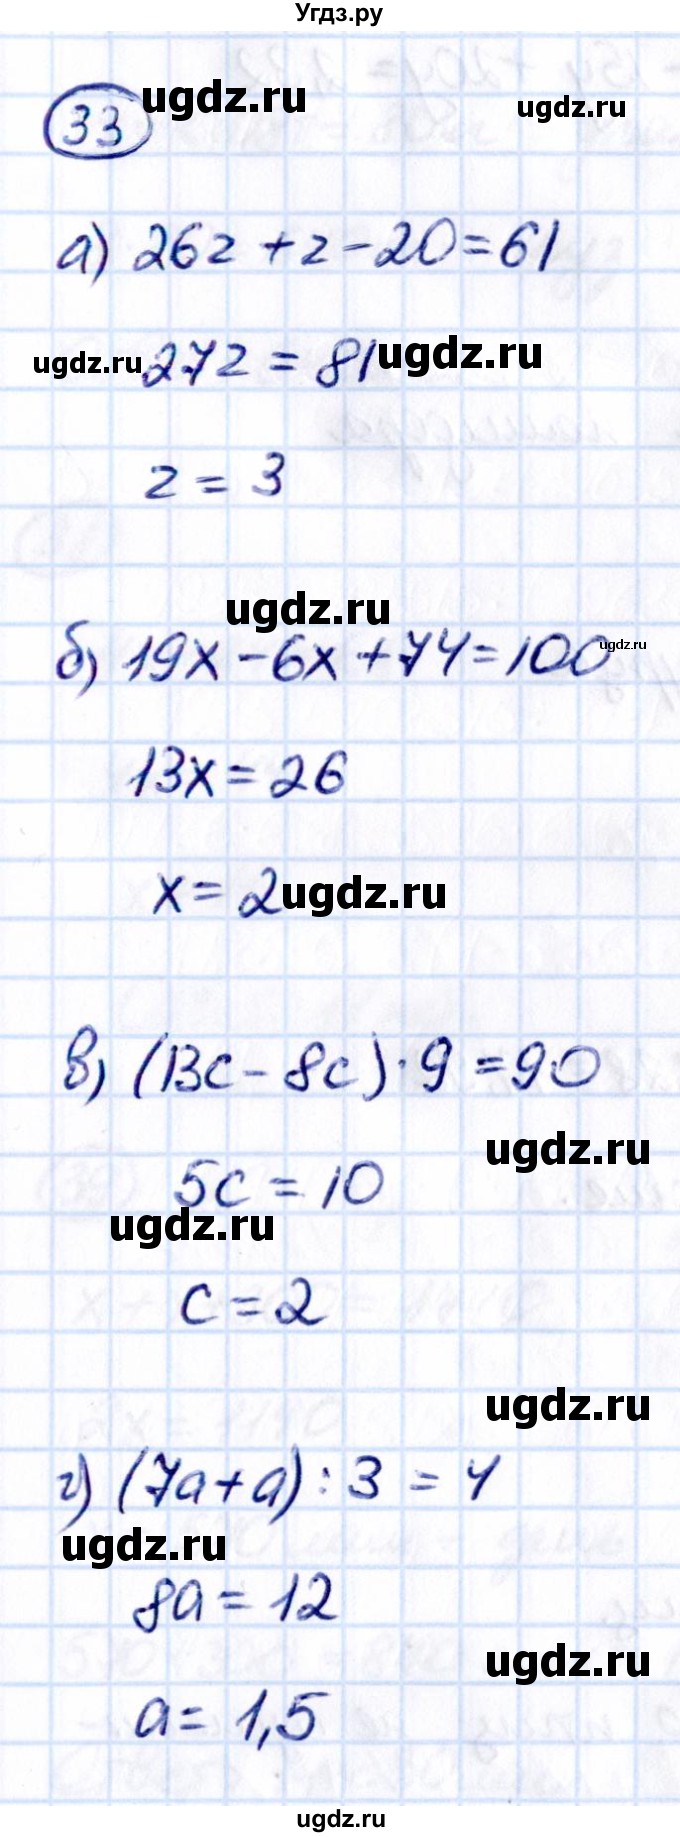 Угдз.ру
ugdz.ru
ugdz.ru
33
а) 26z + z - 20 = 61
ugdz.ru 27z = 81 ugdz.ru
z = 3
ugdz.ru
б) 19x - 6x + 74 = 100 ugdz.ru
13x = 26
x = 2 ugdz.ru
в) (13c - 8c) · 9 = 90
ugdz.ru
5c = 10
ugdz.ru
c = 2
ugdz.ru
г) (7a + a) : 3 = 4
ugdz.ru
8a = 12
ugdz.ru
a = 1,5
ugdz.ru